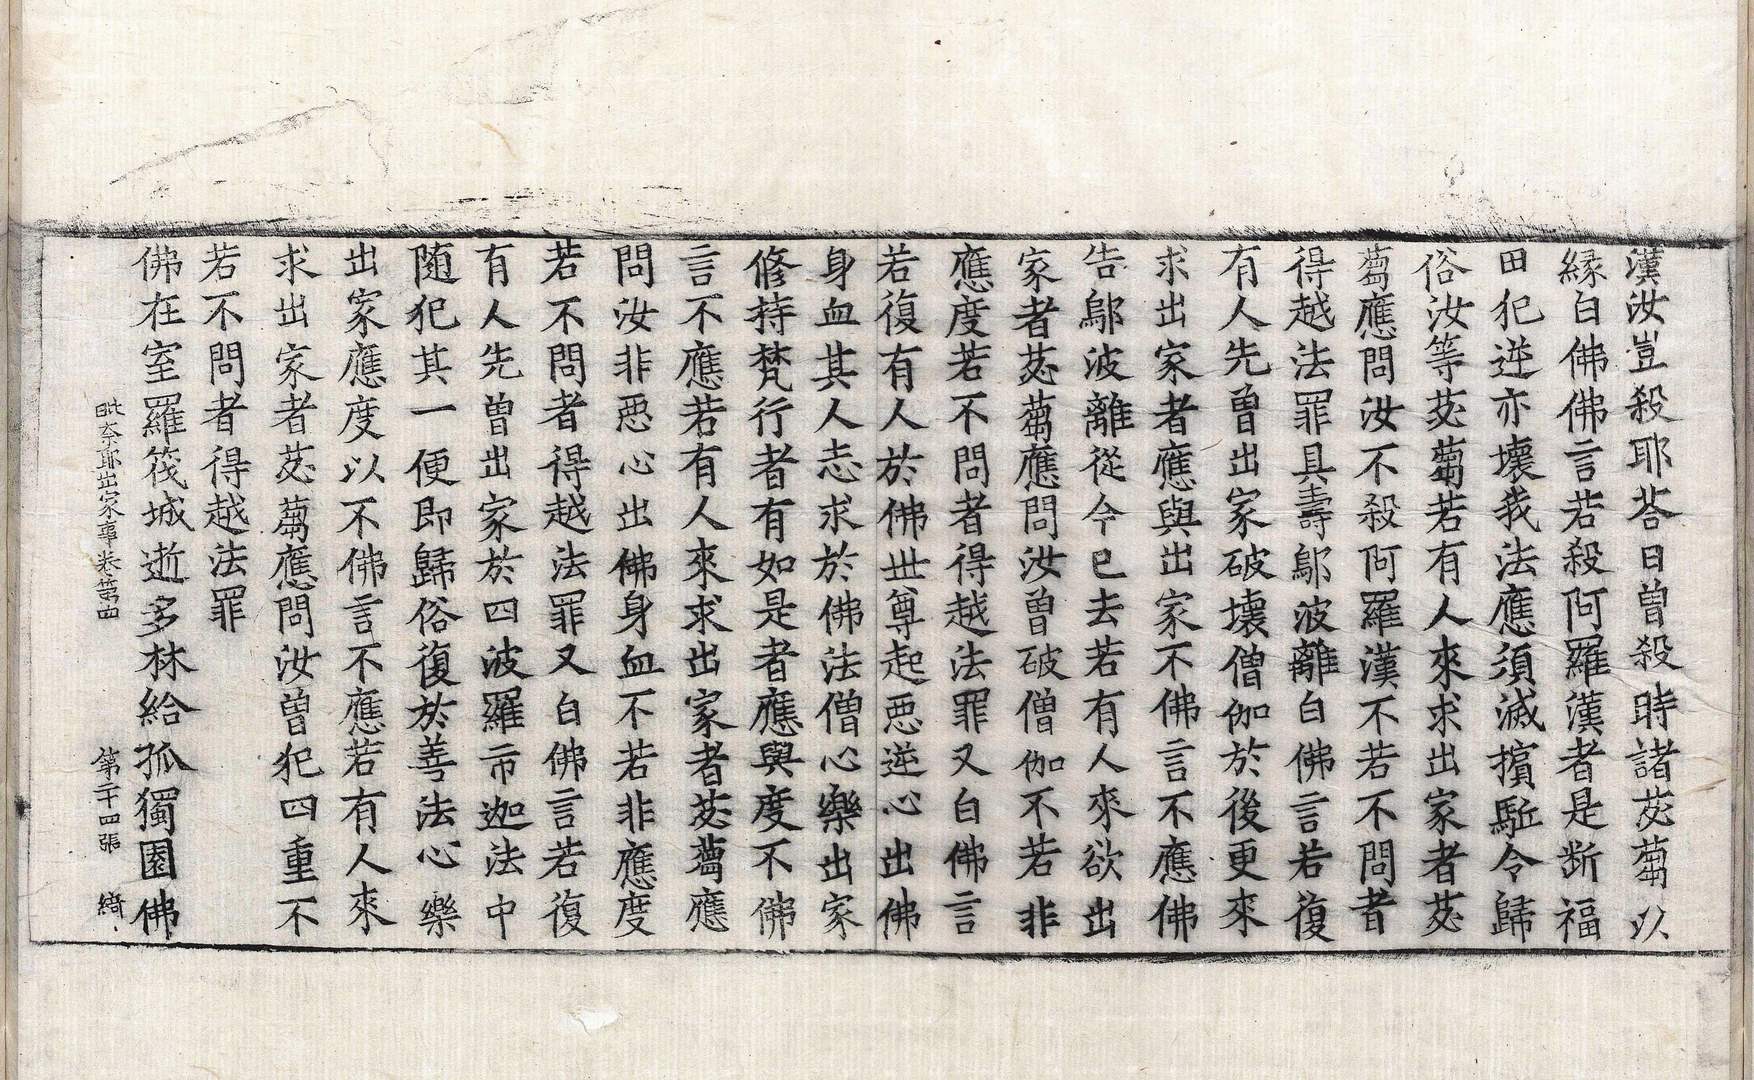 漢汝豈殺耶荅曰曽殺時諸苾蒭以
縁白佛佛言若殺阿羅漢者是断福
田犯逆亦壞我法應須滅擯駈令歸
俗汝等苾蒭若有人來求出家者苾
蒭應問汝不殺阿羅漢不若不問者
得越法罪具壽鄔波離白佛言若復
有人先曽出家破壞僧伽於後更來
求出家者應與出家不佛言不應佛
告鄔波離從今已去若有人來欲出
家者苾蒭應問汝曽破僧伽不若非
應度若不問者得越法罪又白佛言
若復有人於佛世尊起惡逆心出佛
身血其人志求於佛法僧心樂出家
修持梵行者有如是者應與度不佛
言不應若有人來求出家者苾蒭應
問汝非惡心出佛身血不若非應度
若不問者得越法罪又白佛言若復
有人先曽出家於四波羅市迦法中
随犯其一便即歸俗復於善法心樂
出家應度以不佛言不應若有人來
求出家者苾蒭應問汝曽犯四重不
若不問者得越法罪
佛在室羅筏城逝多林給孤獨園佛
毗奈耶出家事卷第四 第二十四張 綺